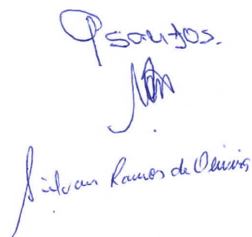 Psantos.
Silvan Ramos de Oliveira